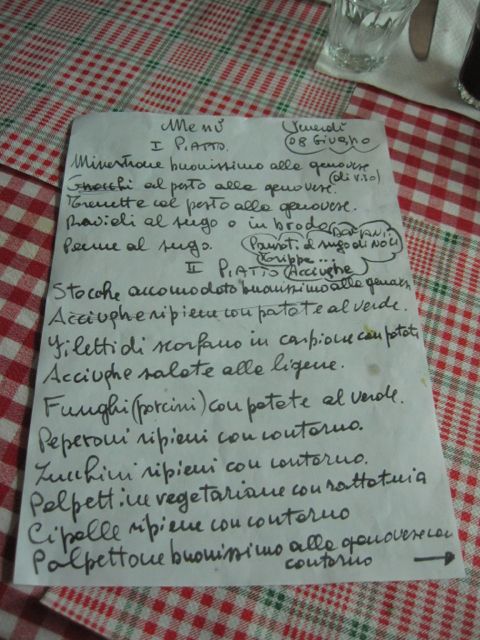 Menù Venerdì
I PIATTO. 08 Giugno
Minestrone buonissimo alla genovese
(di riso)
Gnocchi al pesto alla genovese.
Trenette col pesto alla genovese.
Ravioli al sugo o in brodo
Penne al sugo. Pansoti al sugo di NOCI
trippe...
II PIATTO Acciughe
Stocche accomodato buonissimo alla genovese
Acciughe ripiene con patate al verde.
Filetti di scorfano in carpione con patate
Acciughe salate alla ligure.
Funghi (porcini) con patate al verde.
Peperoni ripieni con contorno.
Zucchini ripieni con contorno.
Polpettine vegetariane con rattatuia
Cipolle ripiene con contorno
Polpettone buonissimo alla genovese con
contorno →